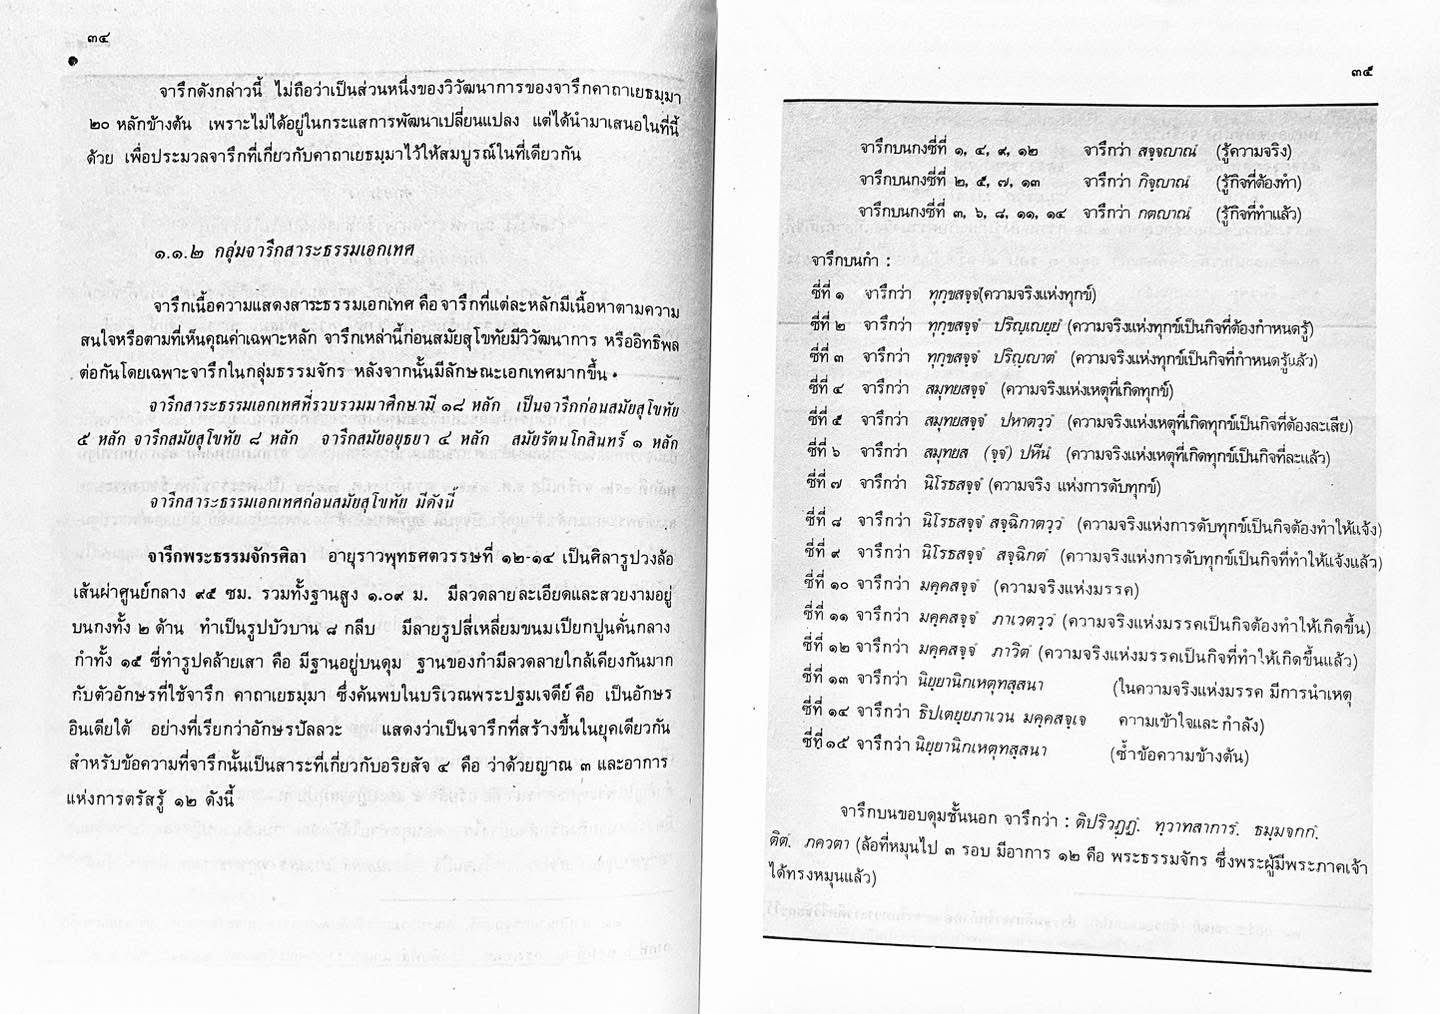 ๓๔
จารึกดังกล่าวนี้ ไม่ถือว่าเป็นส่วนหนึ่งของวิวัฒนาการของจารึกคาถาเยธมฺมา
๒๐ หลักข้างต้น เพราะไม่ได้อยู่ในกระแสการพัฒนาเปลี่ยนแปลง แต่ได้นำมาเสนอในที่นี้
ด้วย เพื่อประมวลจารึกที่เกี่ยวกับคาถาเยธมฺมาไว้ให้สมบูรณ์ในที่เดียวกัน
๑.๑.๒ กลุ่มจารึกสาระธรรมเอกเทศ
จารึกเนื้อความแสดงสาระธรรมเอกเทศ คือ จารึกที่แต่ละหลักมีเนื้อหาตามความ
สนใจหรือตามที่เห็นคุณค่าเฉพาะหลัก จารึกเหล่านี้ก่อนสมัยสุโขทัยมีวิวัฒนาการ หรืออิทธิพล
ต่อกันโดยเฉพาะจารึกในกลุ่มธรรมจักร หลังจากนั้นมีลักษณะเอกเทศมากขึ้น
จารึกสาระธรรมเอกเทศที่รวบรวมมาศึกษามี ๑๘ หลัก เป็นจารึกก่อนสมัยสุโขทัย
๕ หลัก จารึกสมัยสุโขทัย ๘ หลัก จารึกสมัยอยุธยา ๔ หลัก สมัยรัตนโกสินทร์ ๑ หลัก
จารึกสาระธรรมเอกเทศก่อนสมัยสุโขทัย มีดังนี้
จารึกพระธรรมจักรศิลา อายุราวพุทธศตวรรษที่ ๑๒-๑๔ เป็นศิลารูปวงล้อ
เส้นผ่าศูนย์กลาง ๙๕ ซม. รวมทั้งฐานสูง ๑.๐๙ ม. มีลวดลายละเอียดและสวยงามอยู่
บนกงทั้ง ๒ ด้าน ทำเป็นรูปบัวบาน ๘ กลีบ มีลายรูปสี่เหลี่ยมขนมเปียกปูนคั่นกลาง
กำทั้ง ๑๕ ซี่ทำรูปคล้ายเสา คือ มีฐานอยู่บนดุม ฐานของกำมีลวดลายใกล้เคียงกันมาก
กับตัวอักษรที่ใช้จารึก คาถาเยธมฺมา ซึ่งค้นพบในบริเวณพระปฐมเจดีย์ คือ เป็นอักษร
อินเดียใต้ อย่างที่เรียกว่าอักษรปัลลวะ แสดงว่าเป็นจารึกที่สร้างขึ้นในยุคเดียวกัน
สำหรับข้อความที่จารึกนั้นเป็นสาระที่เกี่ยวกับอริยสัจ ๔ คือ ว่าด้วยญาณ ๓ และอาการ
แห่งการตรัสรู้ ๑๒ ดังนี้
๓๕
จารึกบนกงซี่ที่ ๑, ๔, ๙, ๑๒ จารึกว่า สจฺจญาณํ (รู้ความจริง)
จารึกบนกงซี่ที่ ๒, ๕, ๗, ๑๓ จารึกว่า กิจฺญาณํ (รู้กิจที่ต้องทำ)
จารึกบนกงซี่ที่ ๓, ๖, ๘, ๑๑, ๑๔ จารึกว่า กตญาณํ (รู้กิจที่ทำแล้ว)
จารึกบนกำ :
ซี่ที่ ๑ จารึกว่า ทุกฺขสจฺจํ(ความจริงแห่งทุกข์)
ซี่ที่ ๒ จารึกว่า ทุกฺขสจฺจํ ปริญฺเญยฺยํ (ความจริงแห่งทุกข์เป็นกิจที่ต้องกำหนดรู้)
ซี่ที่ ๓ จารึกว่า ทุกฺขสจฺจํ ปริญฺญาตํ (ความจริงแห่งทุกข์เป็นกิจที่กำหนดรู้แล้ว)
ซี่ที่ ๔ จารึกว่า สมุทยสจฺจํ (ความจริงแห่งเหตุที่เกิดทุกข์)
ซี่ที่ ๕ จารึกว่า สมุทยสจฺจํ ปหาตวฺวํ (ความจริงแห่งเหตุที่เกิดทุกข์เป็นกิจที่ต้องละเสีย)
ซี่ที่ ๖ จารึกว่า สมุทยส (จฺจํ) ปหีนํ (ความจริงแห่งเหตุที่เกิดทุกข์เป็นกิจที่ละแล้ว)
ซี่ที่ ๗ จารึกว่า นิโรธสจฺจํ (ความจริง แห่งการดับทุกข์)
ซี่ที่ ๘ จารึกว่า นิโรธสจฺจํ สจฺฉิกาตวฺวํ (ความจริงแห่งการดับทุกข์เป็นกิจต้องทำให้แจ้ง)
ซี่ที่ ๙ จารึกว่า นิโรธสจฺจํ สจฺฉิกตํ (ความจริงแห่งการดับทุกข์เป็นกิจที่ทำให้แจ้งแล้ว)
ซี่ที่ ๑๐ จารึกว่า มคฺคสจฺจํ (ความจริงแห่งมรรค)
ซี่ที่ ๑๑ จารึกว่า มคฺคสจฺจํ ภาเวตวฺวํ (ความจริงแห่งมรรคเป็นกิจต้องทำให้เกิดขึ้น)
ซี่ที่ ๑๒ จารึกว่า มคฺคสจฺจํ ภาวิตํ (ความจริงแห่งมรรคเป็นกิจที่ทำให้เกิดขึ้นแล้ว)
ซี่ที่ ๑๓ จารึกว่า นิยฺยานิกเหตุทสฺสนา (ในความจริงแห่งมรรค มีการนำเหตุ
ซี่ที่ ๑๔ จารึกว่า ธิปเตยฺยภาเวน มคฺคสจฺเจ ความเข้าใจและ กำลัง)
ซี่ที่๑๕ จารึกว่า นิยฺยานิกเหตุทสฺสนา (ซ้ำข้อความข้างต้น)
จารึกบนขอบดุมชั้นนอก จารึกว่า : ติปริวฏฺฏํ. ทฺวาทสาการํ. ธมฺมจกฺกํ.
ติตํ. ภควตา (ล้อที่หมุนไป ๓ รอบ มีอาการ ๑๒ คือ พระธรรมจักร ซึ่งพระผู้มีพระภาคเจ้า
ได้ทรงหมุนแล้ว)